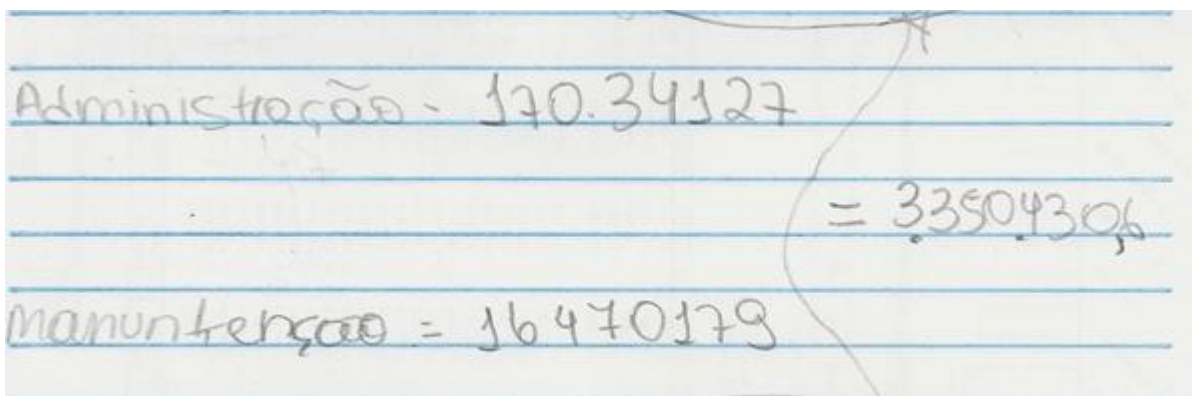 Administração - 170.34127
= 3.3504.430,6
manuntençao = 16470179